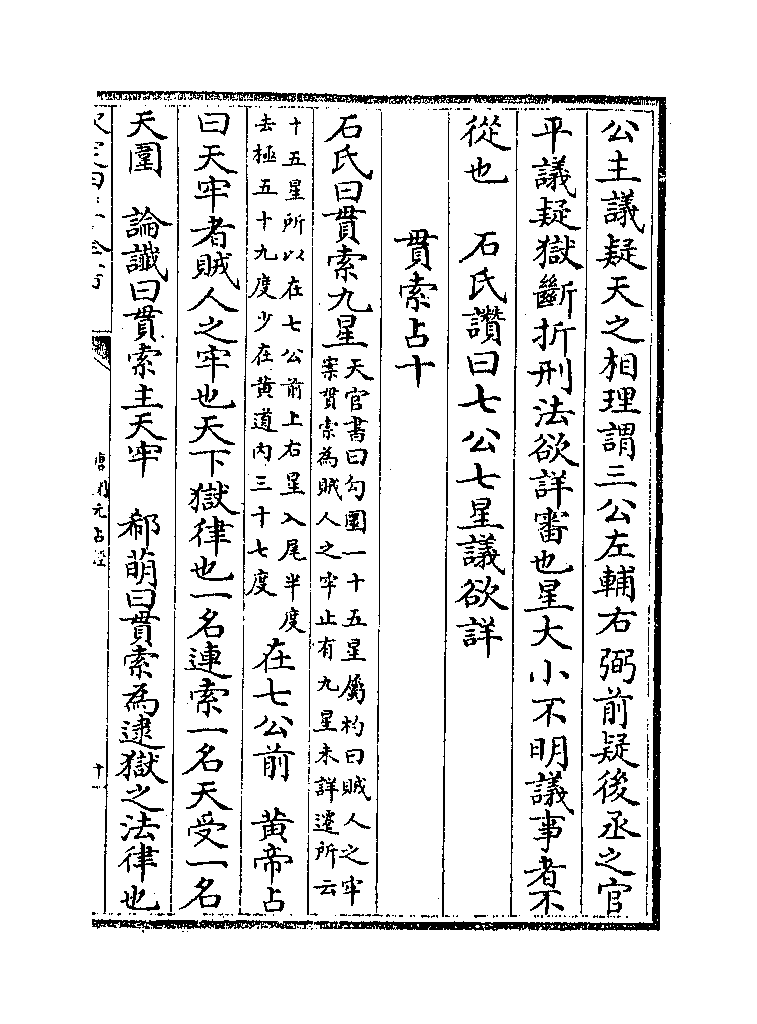 公主議疑天之相理謂三公左輔右弼前疑後丞之官
平議疑獄斷折刑法欲詳審也星大小不明議事者不
從也　石氏讚曰七公七星議欲詳
貫索占十
石氏曰貫索九星天官書曰勾圜一十五星屬杓曰賊人之牢
案貫索為賊人之牢止有九星未詳遷所云
十五星所以在七公前上右星入尾半度
去極五十九度少在黄道内三十七度
在七公前　黄帝占
曰天牢者賊人之牢也天下獄律也一名連索一名天受一名
天圍　論讖曰貫索主天牢　郗萌曰貫索為逮獄之法律也
唐開元占經
十